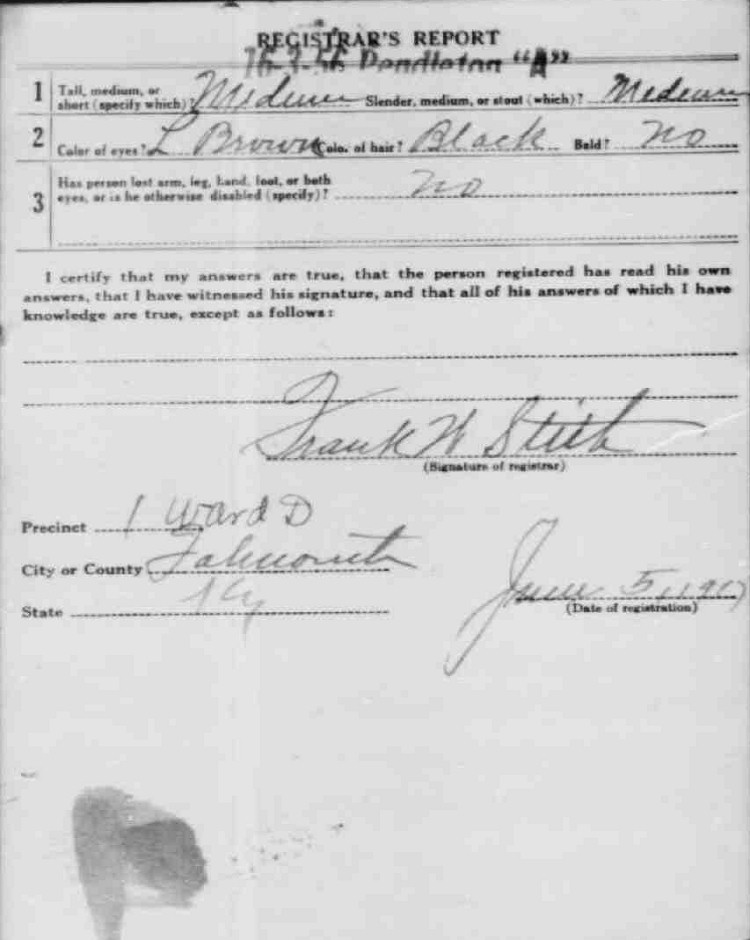 REGISTRAR'S REPORT
16-3-56 Pendleton "A"
1 Tall, medium, or short (specify which)? Medium Slender, medium, or stout (which)? Medium
2 Color of eyes? L Brown Color of hair? Black Bald? No
3 Has person lost arm, leg, hand, foot, or both
eyes, or is he otherwise disabled (specify)? no
I certify that my answers are true, that the person registered has read his own
answers, that I have witnessed his signature, and that all of his answers of which I have
knowledge are true, except as follows:
Frank W Stith
(Signature of registrar)
Precinct 1 Ward D
City or County Falmouth
State Ky
June 5, 1917
(Date of registration)